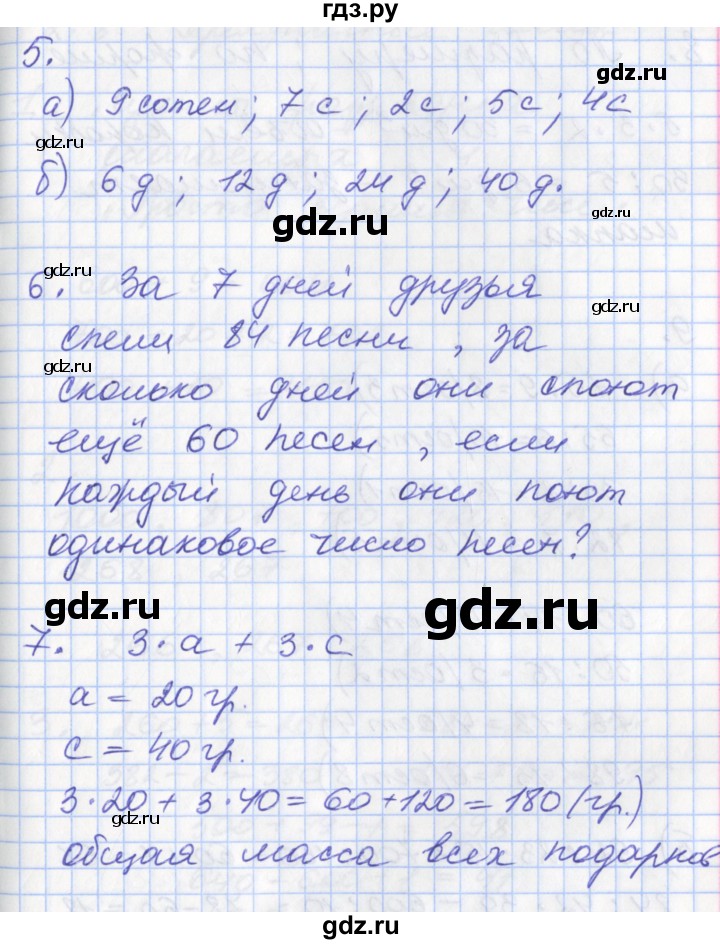 гдз.ру
5.
а) 9 сотен; 7 с; 2с; 5с; 4с
gdz.ru
б) 6 д; 12 д; 24 д; 40 д.
gdz.ru
gdz.ru
gdz.ru
6. За 7 дней друзья
gdz.ru
спели 84 песни, за
gdz.ru
сколько дней они споют
ещё 60 песен, если
каждый день они поют
одинаковое число песен?
gdz.ru
gdz.ru
7. 3·а + 3·с
а = 20 гр.
с = 40 гр.
3·20 + 3·40 = 60 + 120 = 180 (гр.)
gdz.ru
gdz.ru
общая масса всех подарков
gdz.ru